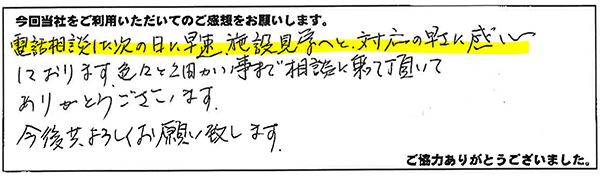 今回当社をご利用いただいてのご感想をお願いします。
電話相談した次の日に早速、施設見学へと、対応の早さに感心
しております。色々と細かい事まで相談に乗って頂いて
ありがとうございます。
今後共よろしくお願い致します。
ご協力ありがとうございました。